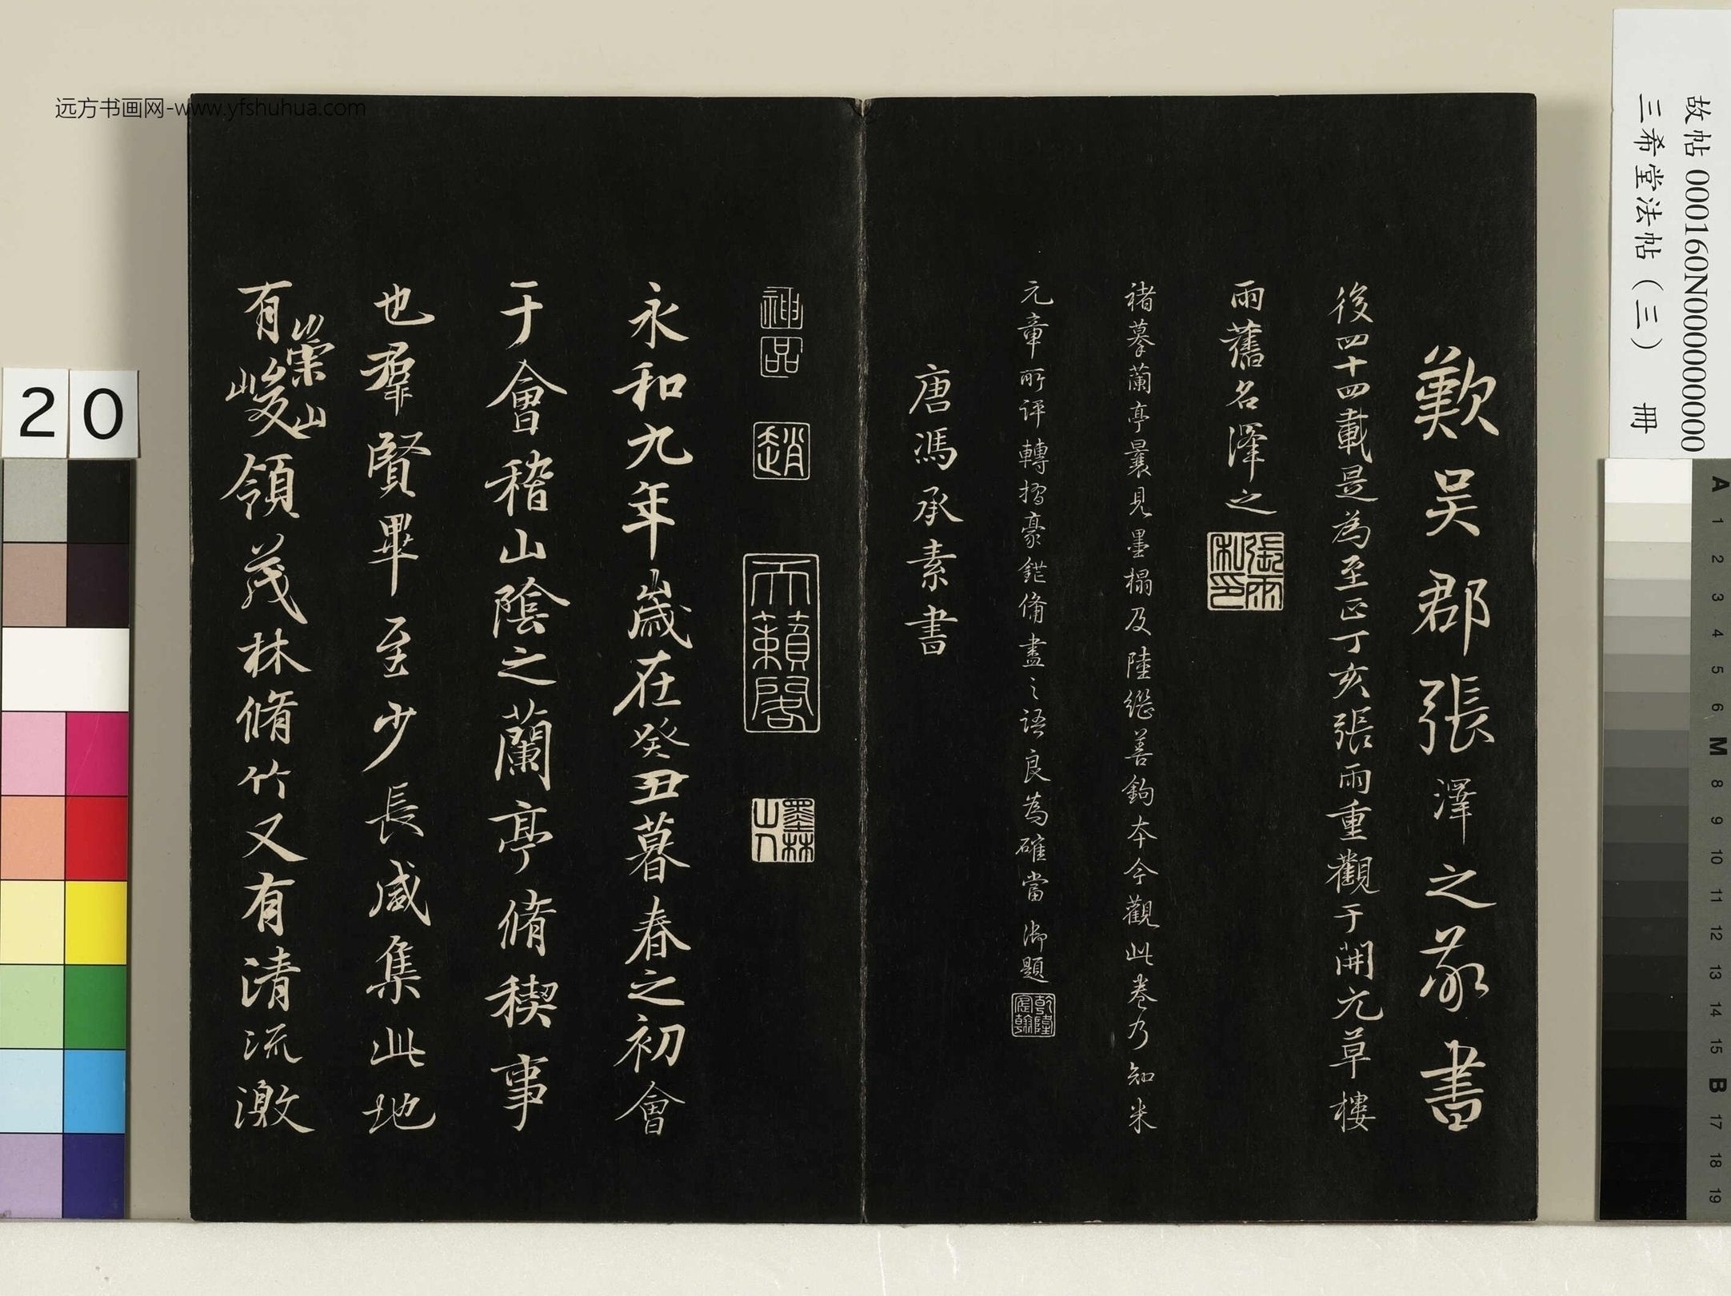 歎吳郡張澤之敬書
後四十四載是為至正丁亥張雨重觀于開元草樓
雨舊名澤之
張雨私印
褚摹蘭亭曩見墨搨及陸繼善鉤本今觀此卷乃知米
元章所評轉摺豪鋩備盡之語良為確當御題
乾隆宸翰
唐馮承素書
神品
趙
天籟閣
墨林山人
永和九年歲在癸丑暮春之初會
于會稽山陰之蘭亭脩稧事
也羣賢畢至少長咸集此地
有崇山峻領茂林脩竹又有清流激
故帖 000160N000000000
三希堂法帖(三) 冊
远方书画网-www.yfshuhua.com
20
A 1 2 3 4 5 6 M 8 9 10 11 12 13 14 15 B 17 18 19